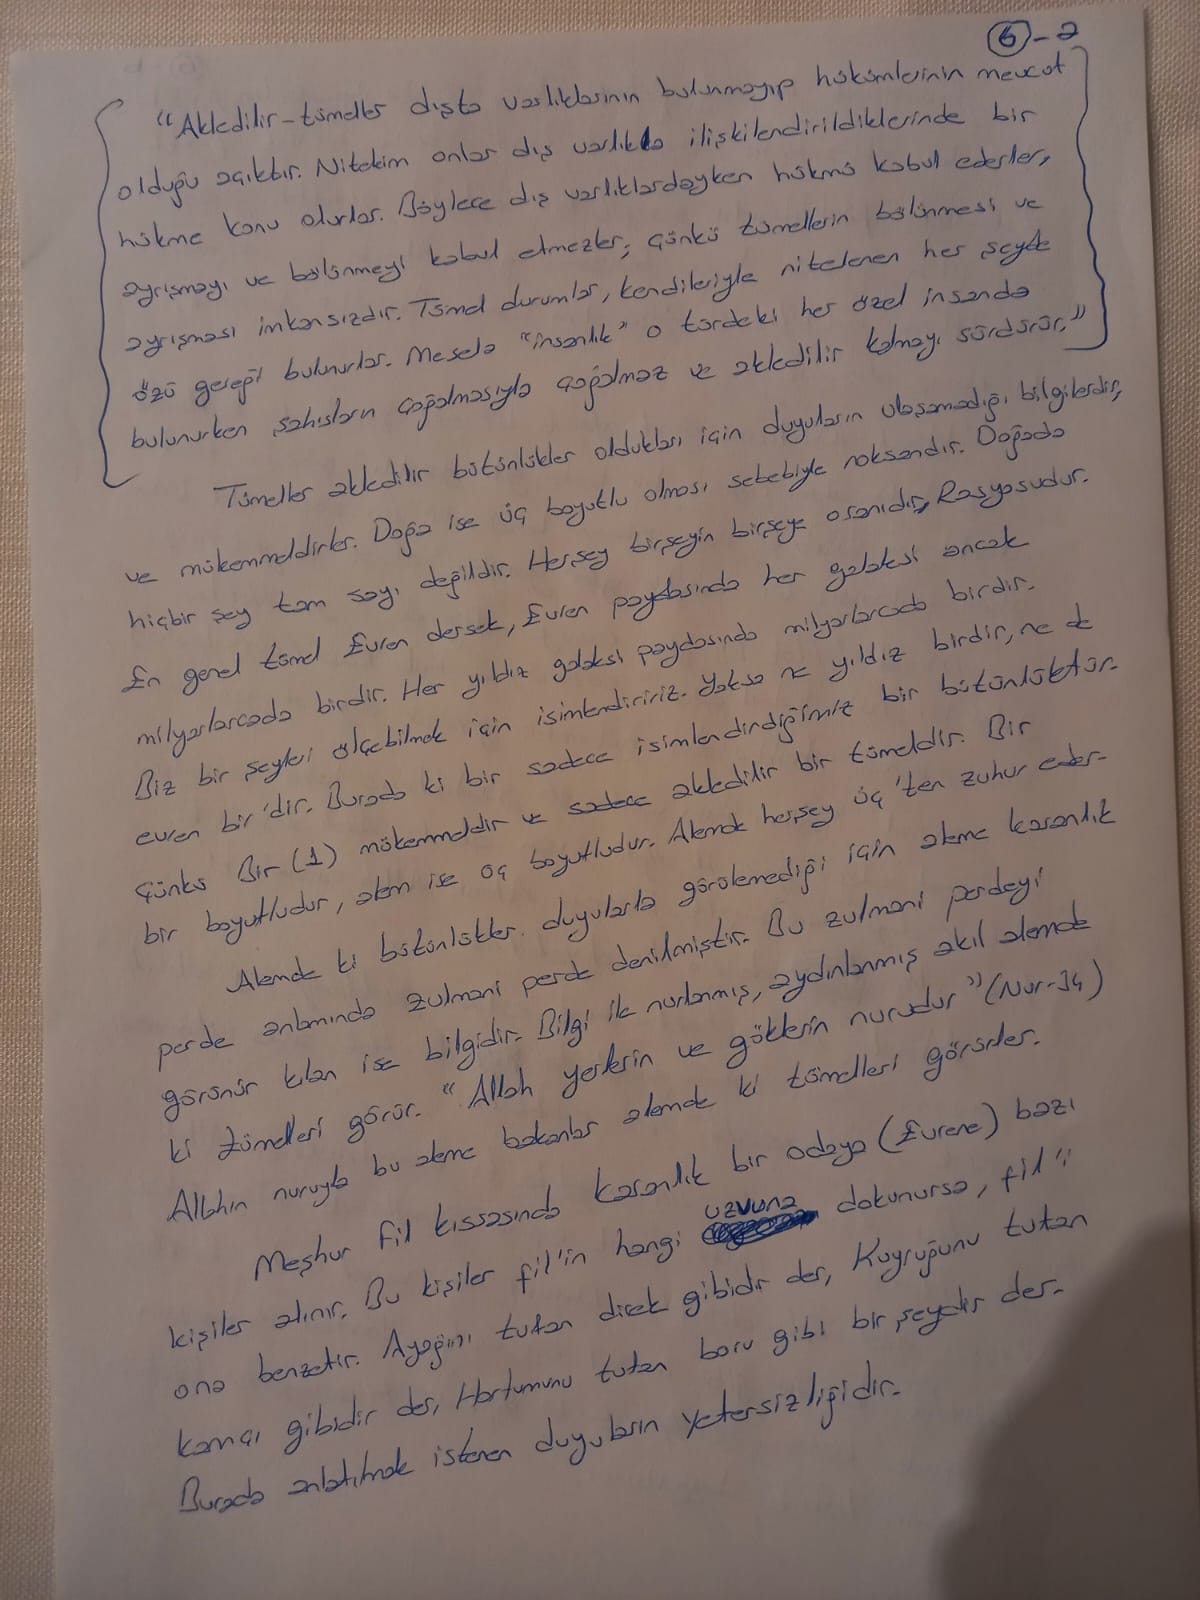 6-a
"Akledilir-tümeller dışta varlıklarının bulunmayıp hükümlerinin mevcut
olduğu açıktır. Nitekim onlar dış varlıkla ilişkilendirildiklerinde bir
hükme konu olurlar. Böylece dış varlıklardayken hükmü kabul ederler,
ayrışmayı ve bölünmeyi kabul etmezler; çünkü tümellerin bölünmesi ve
ayrışması imkansızdır. Tümel durumlar, kendileriyle nitelenen her şeyde
özü gereği bulunurlar. Mesela "insanlık" o türdeki her özel insanda
bulunurken şahısların çoğalmasıyla çoğalmaz ve akledilir kalmayı sürdürür."
Tümeller akledilir bütünlükler oldukları için duyuların ulaşamadığı bilgilerdir,
ve mükemmeldirler. Doğa ise üç boyutlu olması sebebiyle noksandır. Doğada
hiçbir şey tam sayı değildir. Herşey birşeyin birşeye oranıdır, Rasyosudur.
En genel tümel Evren dersek, Evren paydasında her galaksi ancak
milyarlarcada birdir. Her yıldız galaksi paydasında milyarlarcada birdir.
Biz bir şeyleri ölçebilmek için isimlendiririz. Yoksa ne yıldız birdir, ne de
evren bir'dir. Burada ki bir sadece isimlendirdiğimiz bir bütünlüktür.
Çünkü Bir (1) mükemmeldir ve sadece akledilir bir tümeldir. Bir
bir boyutludur, alem ise üç boyutludur. Alemde herşey üç'ten zuhur eder.
Alemde ki bütünlükler duyularla görülemediği için aleme karanlık
perde anlamında zulmani perde denilmiştir. Bu zulmani perdeyi
görünür kılan ise bilgidir. Bilgi ile nurlanmış, aydınlanmış akıl alemde
ki tümelleri görür. "Allah yerlerin ve göklerin nurudur" (Nur-34)
Allahın nuruyla bu aleme bakanlar alemde ki tümelleri görürler.
Meşhur fil kıssasında karanlık bir odaya (Evrene) bazı
kişiler alınır. Bu kişiler fil'in hangi uzvuna dokunursa, fil'i
ona benzetir. Ayağını tutan direk gibidir der, Kuyruğunu tutan
kamçı gibidir der, Hortumunu tutan boru gibi bir şeydir der.
Burada anlatılmak istenen duyuların yetersizliğidir.